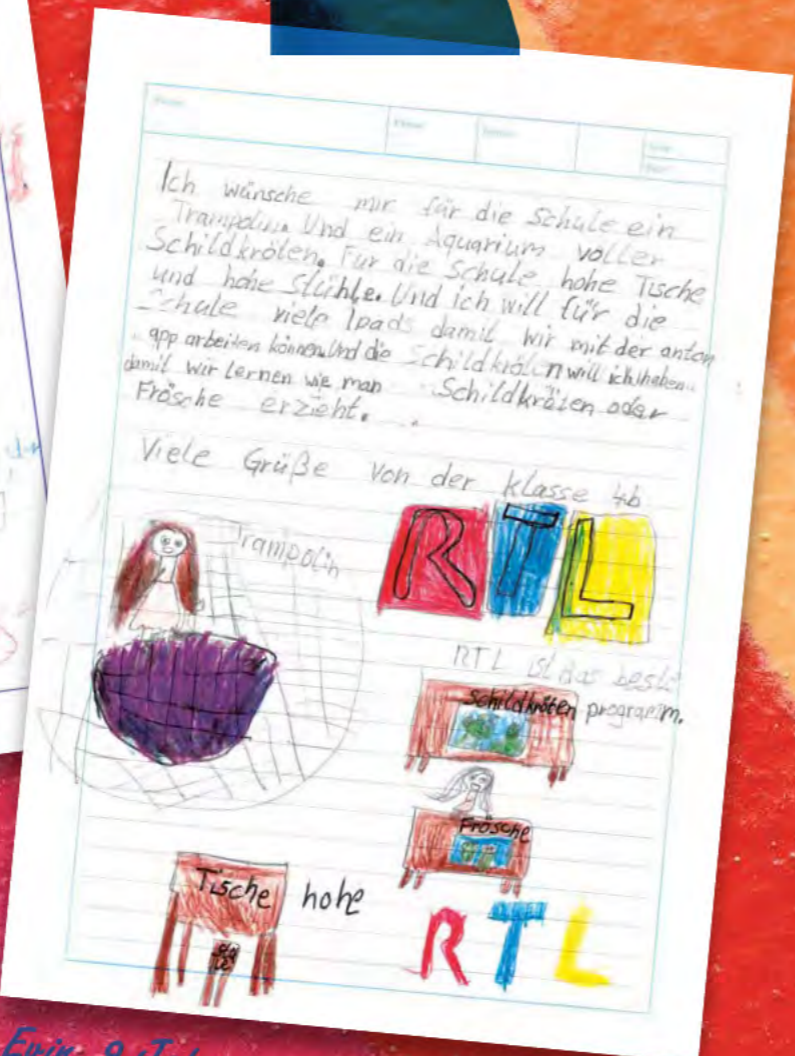 Ich wünsche mir für die Schule ein
Trampolin. Und ein Aquarium voller
Schildkröten. Für die Schule hohe Tische
und hohe Stühle. Und ich will für die
Schule viele Ipads damit wir mit der anton
app arbeiten können. Und die Schildkröten will ich haben
damit wir lernen wie man Schildkröten oder
Frösche erzieht.
Viele Grüße von der Klasse 4b
Trampolin
RTL
RTL ist das beste
programm.
Schildkröten
Frösche
Tische hohe
RTL